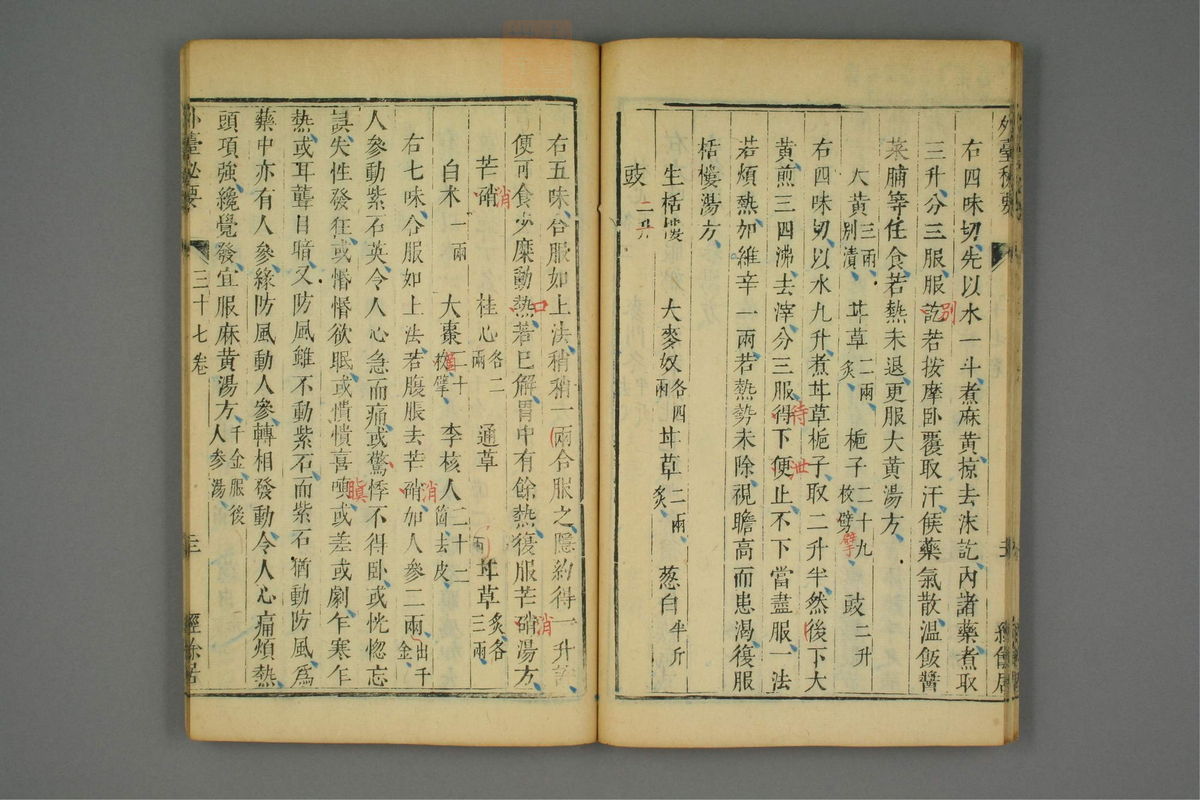 外臺秘要
經餘居
右四味切先以水一斗煮麻黃掠去沫訖內諸藥煮取
三升分三服服訖若按摩臥覆取汗候藥氣散溫飯醬
別
菜脯等任食若熱未退更服大黃湯方
大黃三兩別漬 甘草二兩炙 梔子二十九枚劈 豉二升
擘
右四味切以水九升煮甘草梔子取二升半然後下大
黃煎三四沸去滓分三服得下便止不下當盡服一法
待 泄
若煩熱加維辛一兩若熱勢未除視瞻高而患渴復服
栝樓湯方
生栝樓 大麥奴各四兩 甘草二兩炙 葱白半斤
豉二升
右五味合服如上法稍稍一兩合服之隱約得一升許
便可食少糜動熱若已解胃中有餘熱復服芒硝湯方
口 消
芒硝 桂心各二兩 通草 甘草炙各三兩
消
白术一兩 大棗二十枚擘 李核人二十二箇去皮
箇
右七味合服如上法若腹脹去芒硝加人參二兩出千金
消
人參動紫石英令人心急而痛或驚悸不得臥或恍惚忘
誤失性發狂或惛惛欲眠或憒憒喜嗔或差或劇乍寒乍
瞋
熱或耳聾目暗又防風雖不動紫石而紫石猶動防風爲
藥中亦有人參緣防風動人參轉相發動令人心痛煩熱
頭項強纔覺發宜服麻黃湯方千金服後人參湯
外臺秘要 三十七卷 經餘居